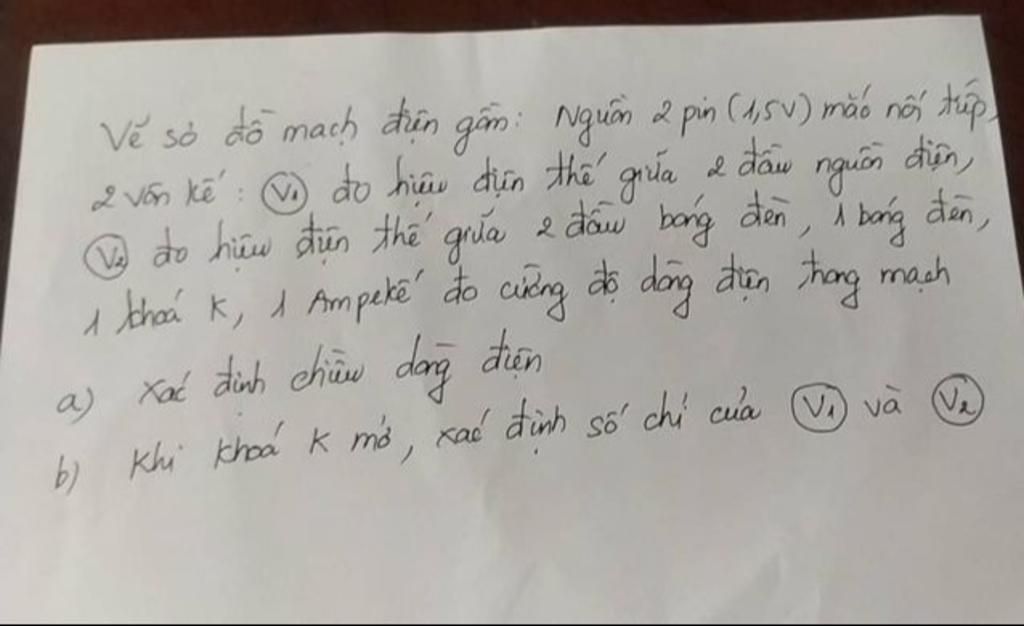 Vẽ sơ đồ mạch điện gồm: Nguồn 2 pin (1,5V) mắc nối tiếp,
2 vôn kế: (V1) đo hiệu điện thế giữa 2 đầu nguồn điện,
(V2) đo hiệu điện thế giữa 2 đầu bóng đèn, 1 bóng đèn,
1 khoá K, 1 Ampekế đo cường độ dòng điện trong mạch
a) Xác định chiều dòng điện
b) Khi khoá K mở, xác định số chỉ của (V1) và (V2)